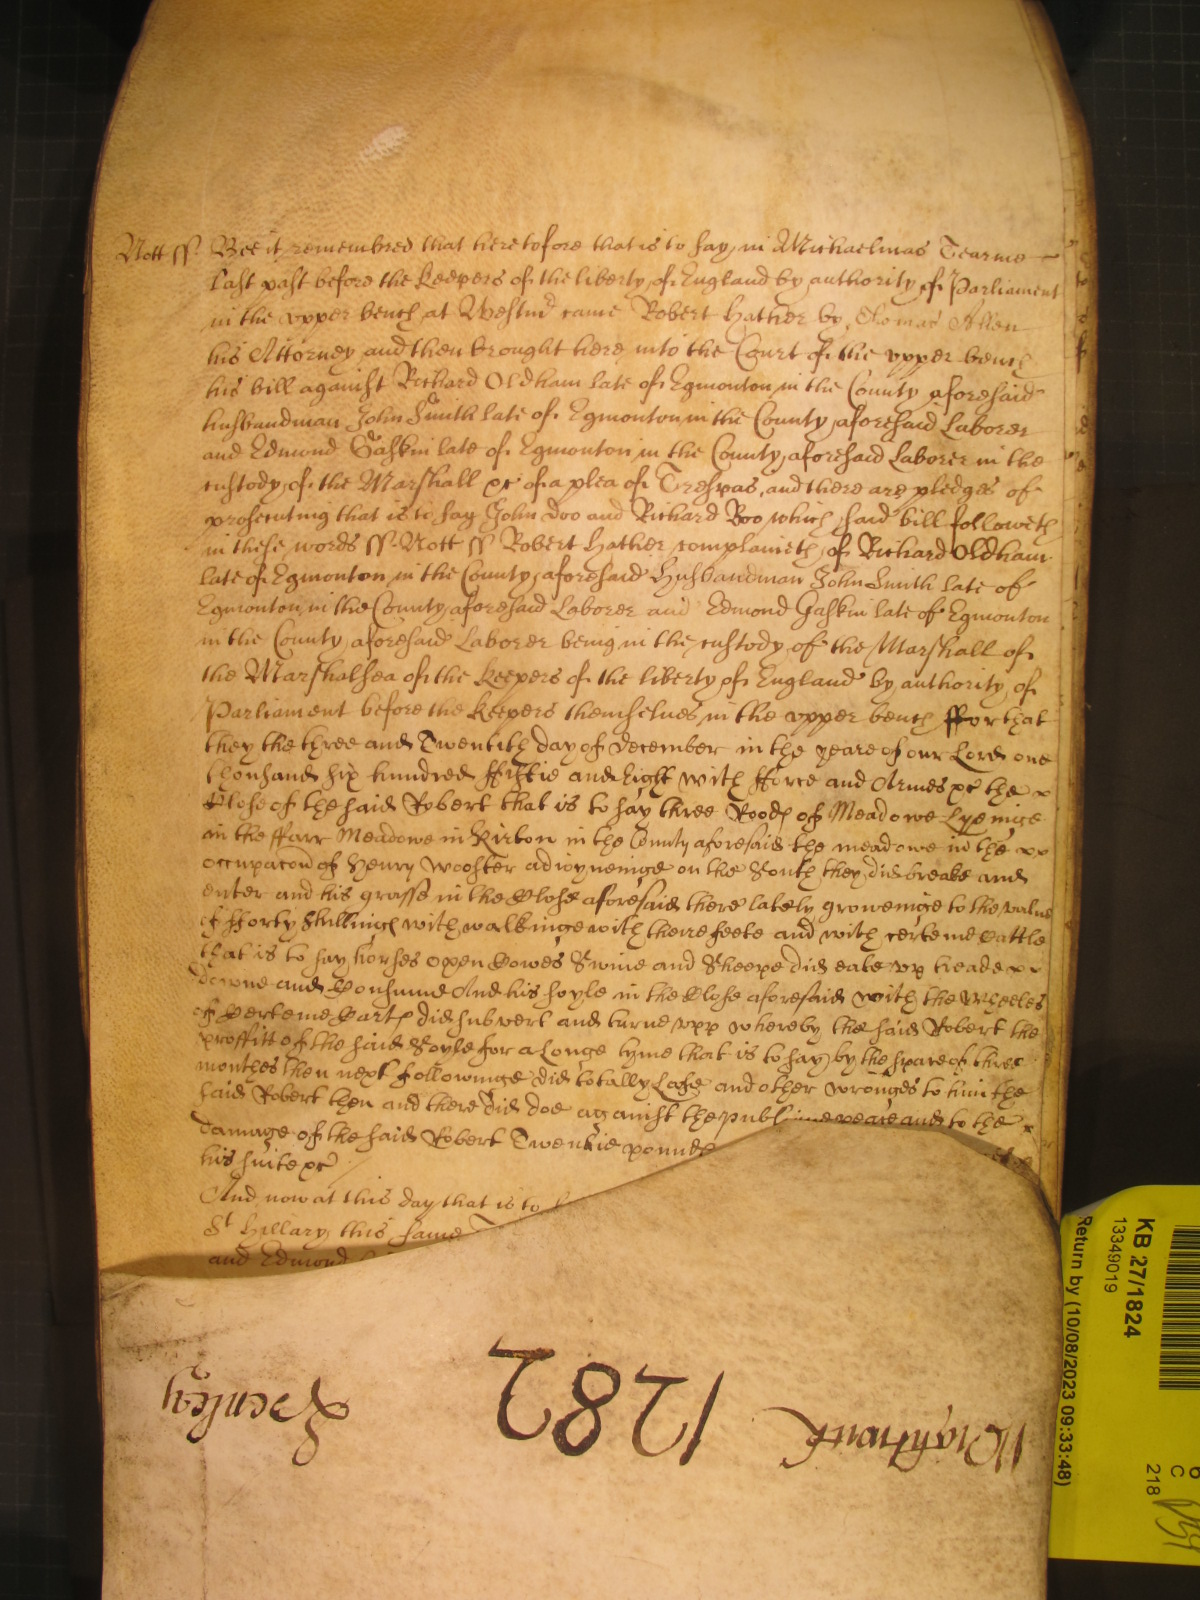 Nott ss Bee it remembred that heretofore that is to say in Michaelmas Tearme
last past before the Keepers of the liberty of England by authority of Parliament
in the upper bench at Westmr came Robert Hather by Thomas Allen
his Attorney and then brought here into the Court of the upper bench
his bill against Richard Oldham late of Egmonton in the County aforesaid
husbandman John Smith late of Egmonton in the County aforesaid Laborer
and Edmond Gaskin late of Egmonton in the County aforesaid Laborer in the
custody of the Marshall &c of a plea of Trespas and there are pledges of
prosecuting that is to say John Doo and Richard Roo which said bill followeth
in these words ss Nott ss Robert Hather complaineth of Richard Oldham
late of Egmonton in the County aforesaid Husbandman John Smith late of
Egmonton in the County aforesaid Laborer and Edmond Gaskin late of Egmonton
in the County aforesaid Laborer being in the custody of the Marshall of
the Marshalsea of the Keepers of the liberty of England by authority of
Parliament before the Keepers themselues in the upper bench ffor that
they the three and Twentith day of December in the yeare of our Lord one
thousand six hundred ffiftie and Eight with fforce and Armes &c the
Close of the said Robert that is to say three Roods of Meadowe Lyeinge
in the ffarr Meadowe in Kirton in the County aforesaid the meadowe in the
occupacon of Henry Wooster adioyneinge on the South they did breake and
enter and his grasse in the Close aforesaid there lately groweinge to the value
of fforty Shillings with walkinge with theire feete and with certeine Cattle
that is to say horses Oxen Cowes Swine and Sheepe did eate up treade
downe and Consume And his soyle in the Close aforesaid with the Wheeles
of Certeine Carts did subvert and turne upp whereby the said Robert the
proffitt of the said Soyle for a Longe tyme that is to say by the space of three
months then next followinge did totally Lose and other wronges to him the
said Robert then and there did doe against the publique peace and to the
damage of the said Robert Twentie pounds
his suite &c
And now at this day that is to
St Hillary this same
and Edmond
Henley 1282 Wightwick
KB 27/1824
13349019
Return by (10/08/2023 09:33:48)
6
C
218